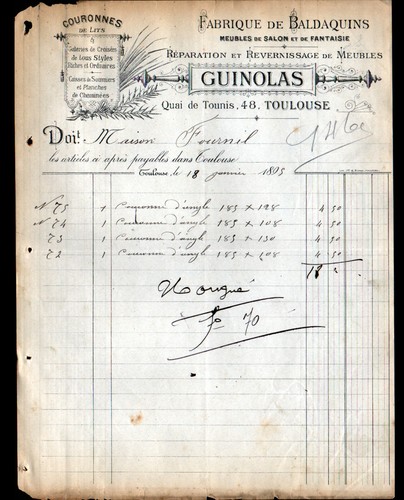 COURONNES
DE LITS
&
Galeries de Croisées
de tous Styles
Riches et Ordinaires
Casses à Sommiers
et Planches
de Cheminées
FABRIQUE DE BALDAQUINS
MEUBLES DE SALON ET DE FANTAISIE
RÉPARATION ET REVERNISSAGE DE MEUBLES
GUINOLAS
Quai de Tounis, 48. TOULOUSE
Doit Maison Fournil
les articles ci après payables dans Toulouse
Toulouse, le 18 janvier 1895
No 75 1 Couronne d'angle 185 × 128 4 50
No 74 1 Couronne d'angle 185 × 108 4 50
73 1 Couronne d'angle 185 × 130 4 50
72 1 Couronne d'angle 185 × 108 4 50
18 "
70